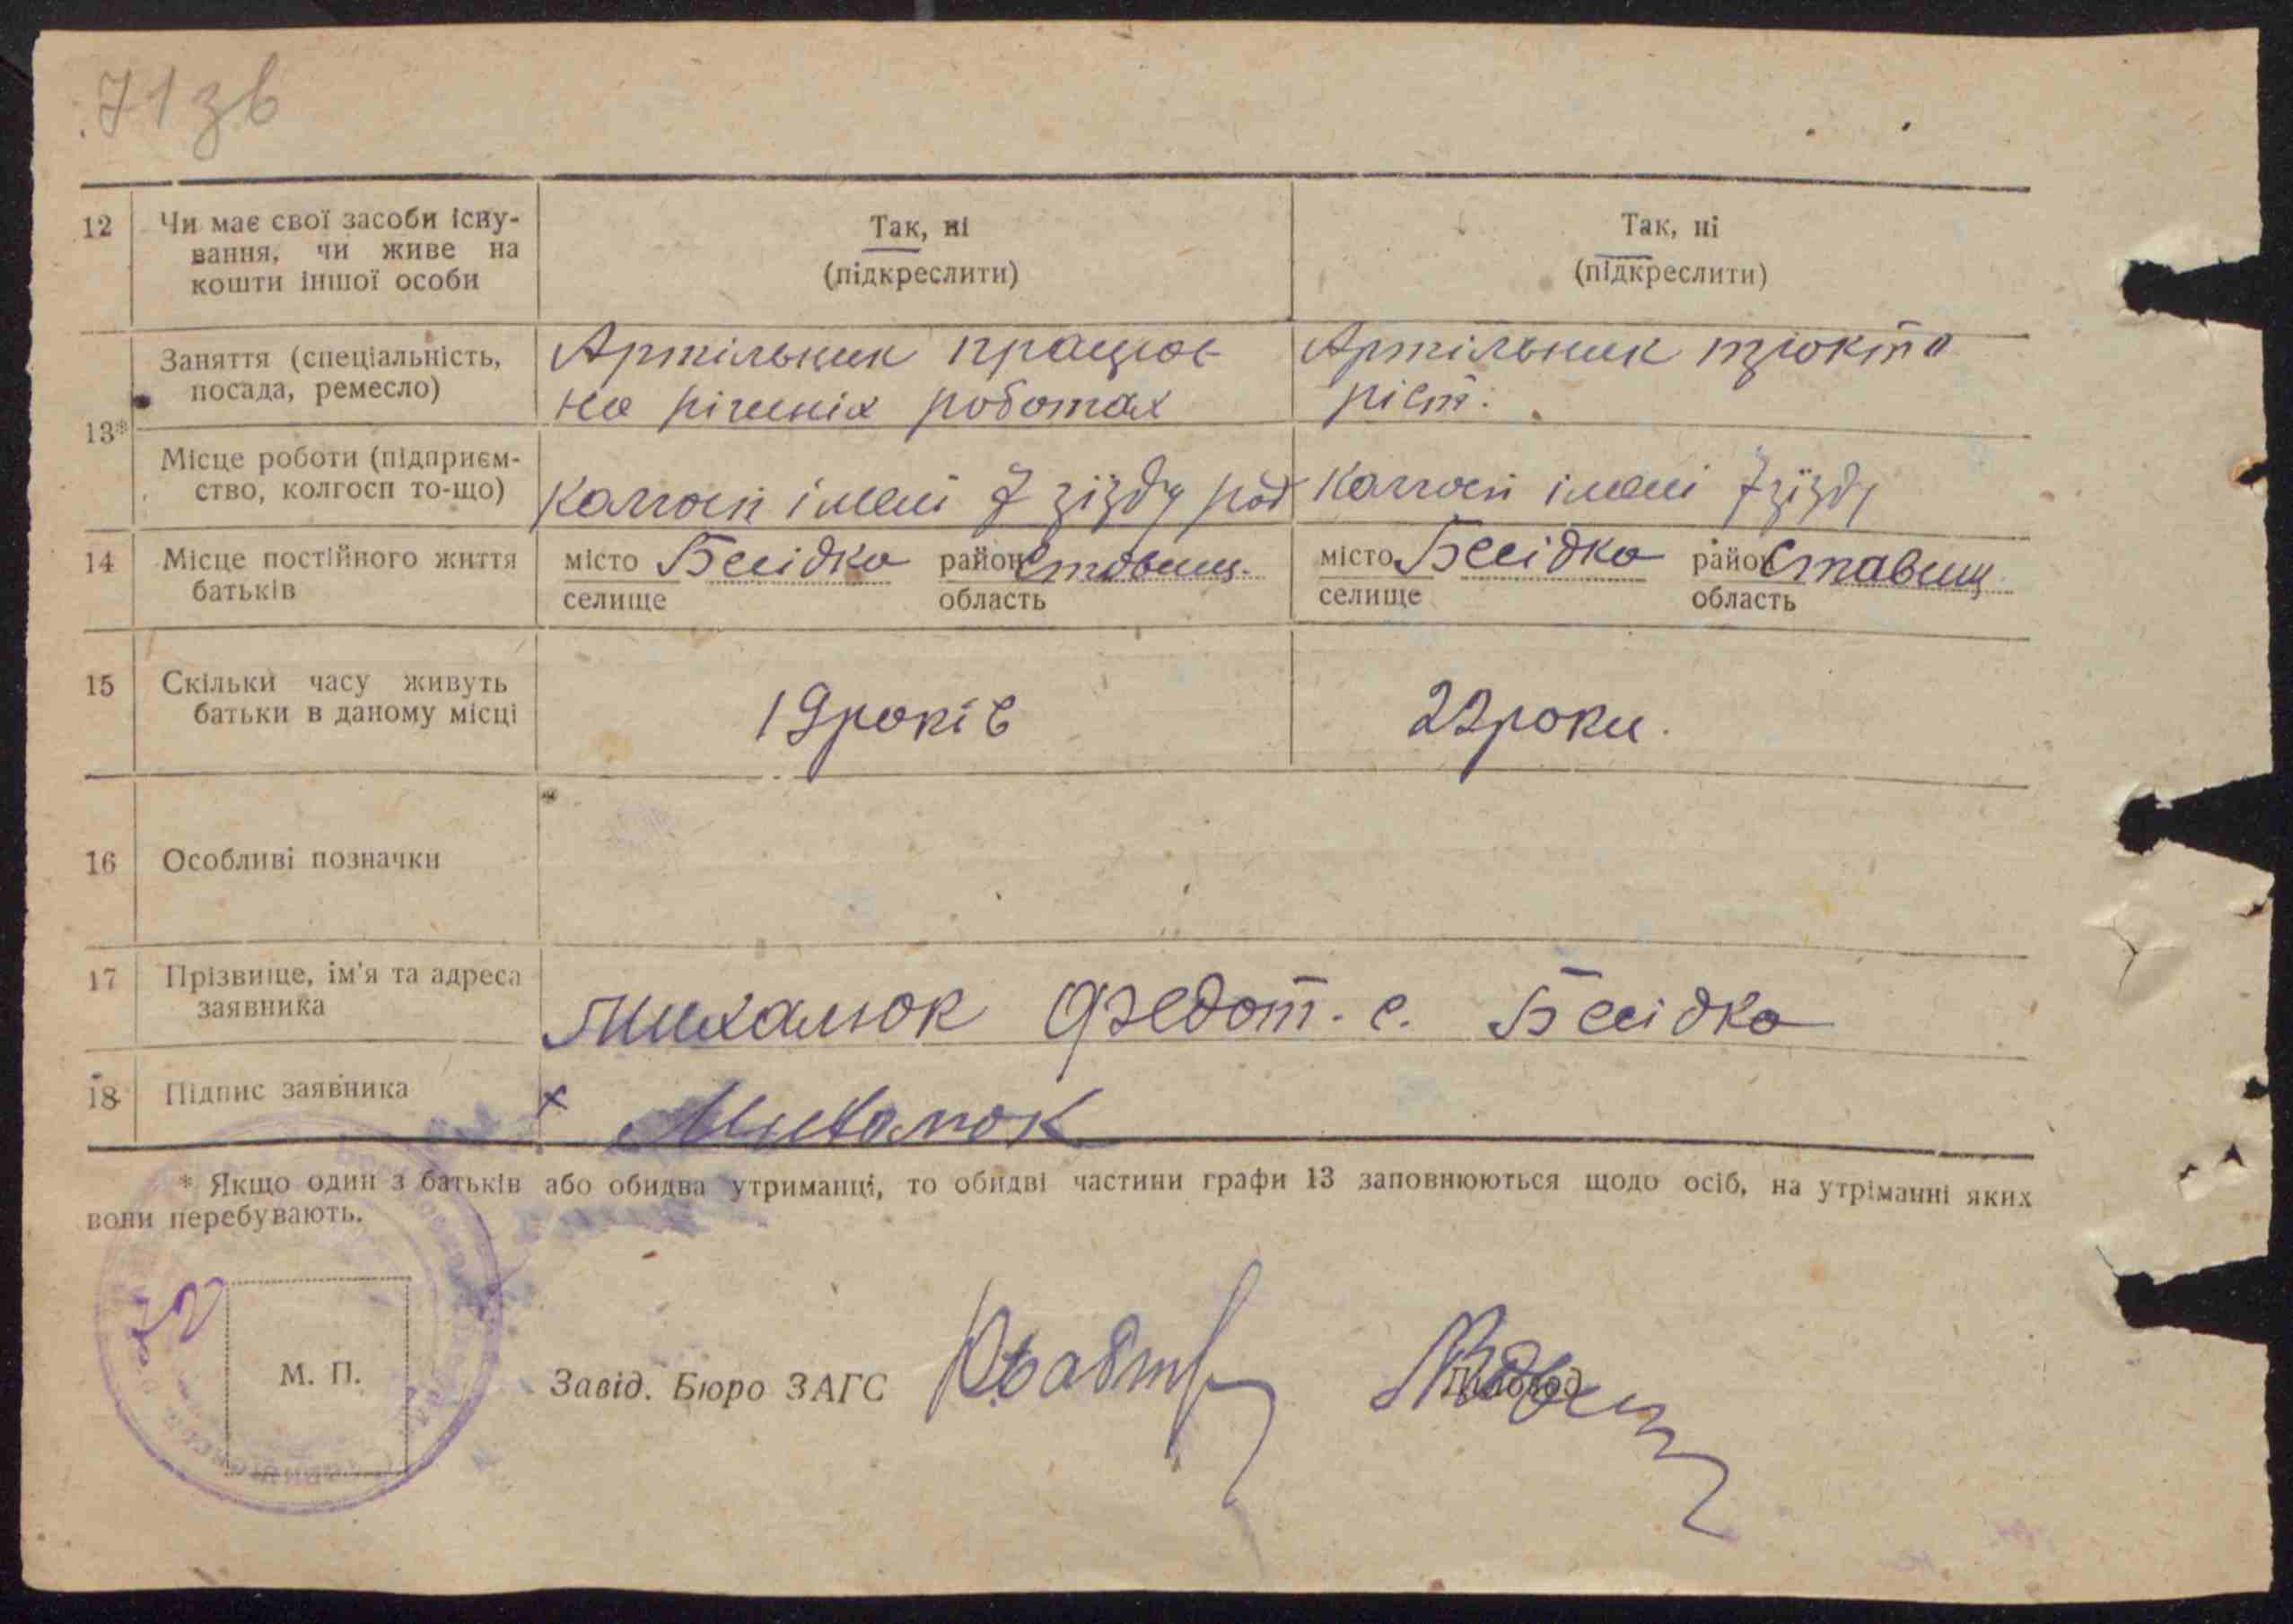 71 зв
12 Чи має свої засоби існу-
вання, чи живе на
кошти іншої особи
Так, ні
(підкреслити)
Так, ні
(підкреслити)
13*
Заняття (спеціальність,
посада, ремесло)
Артільник працює
на різних роботах
Артільник
Місце роботи (підприєм-
ство, колгосп то-що)
Колгосп імені 7 зїзду рад
Колгосп імені 7 зїзду
14 Місце постійного життя
батьків
місто Бесідка район Ставищ.
селище область
місто Бесідка район Ставищ
селище область
15 Скільки часу живуть
батьки в даному місці
19 років
22 роки.
16 Особливі позначки
17 Прізвище, ім'я та адреса
заявника
Михалюк Федот. с. Бесідка
18 Підпис заявника
x Михалюк
* Якщо один з батьків або обидва утриманці, то обидві частини графи 13 заповнюються щодо осіб, на утріманні яких
вони перебувають.
М. П.
Завід. Бюро ЗАГС
Діловод